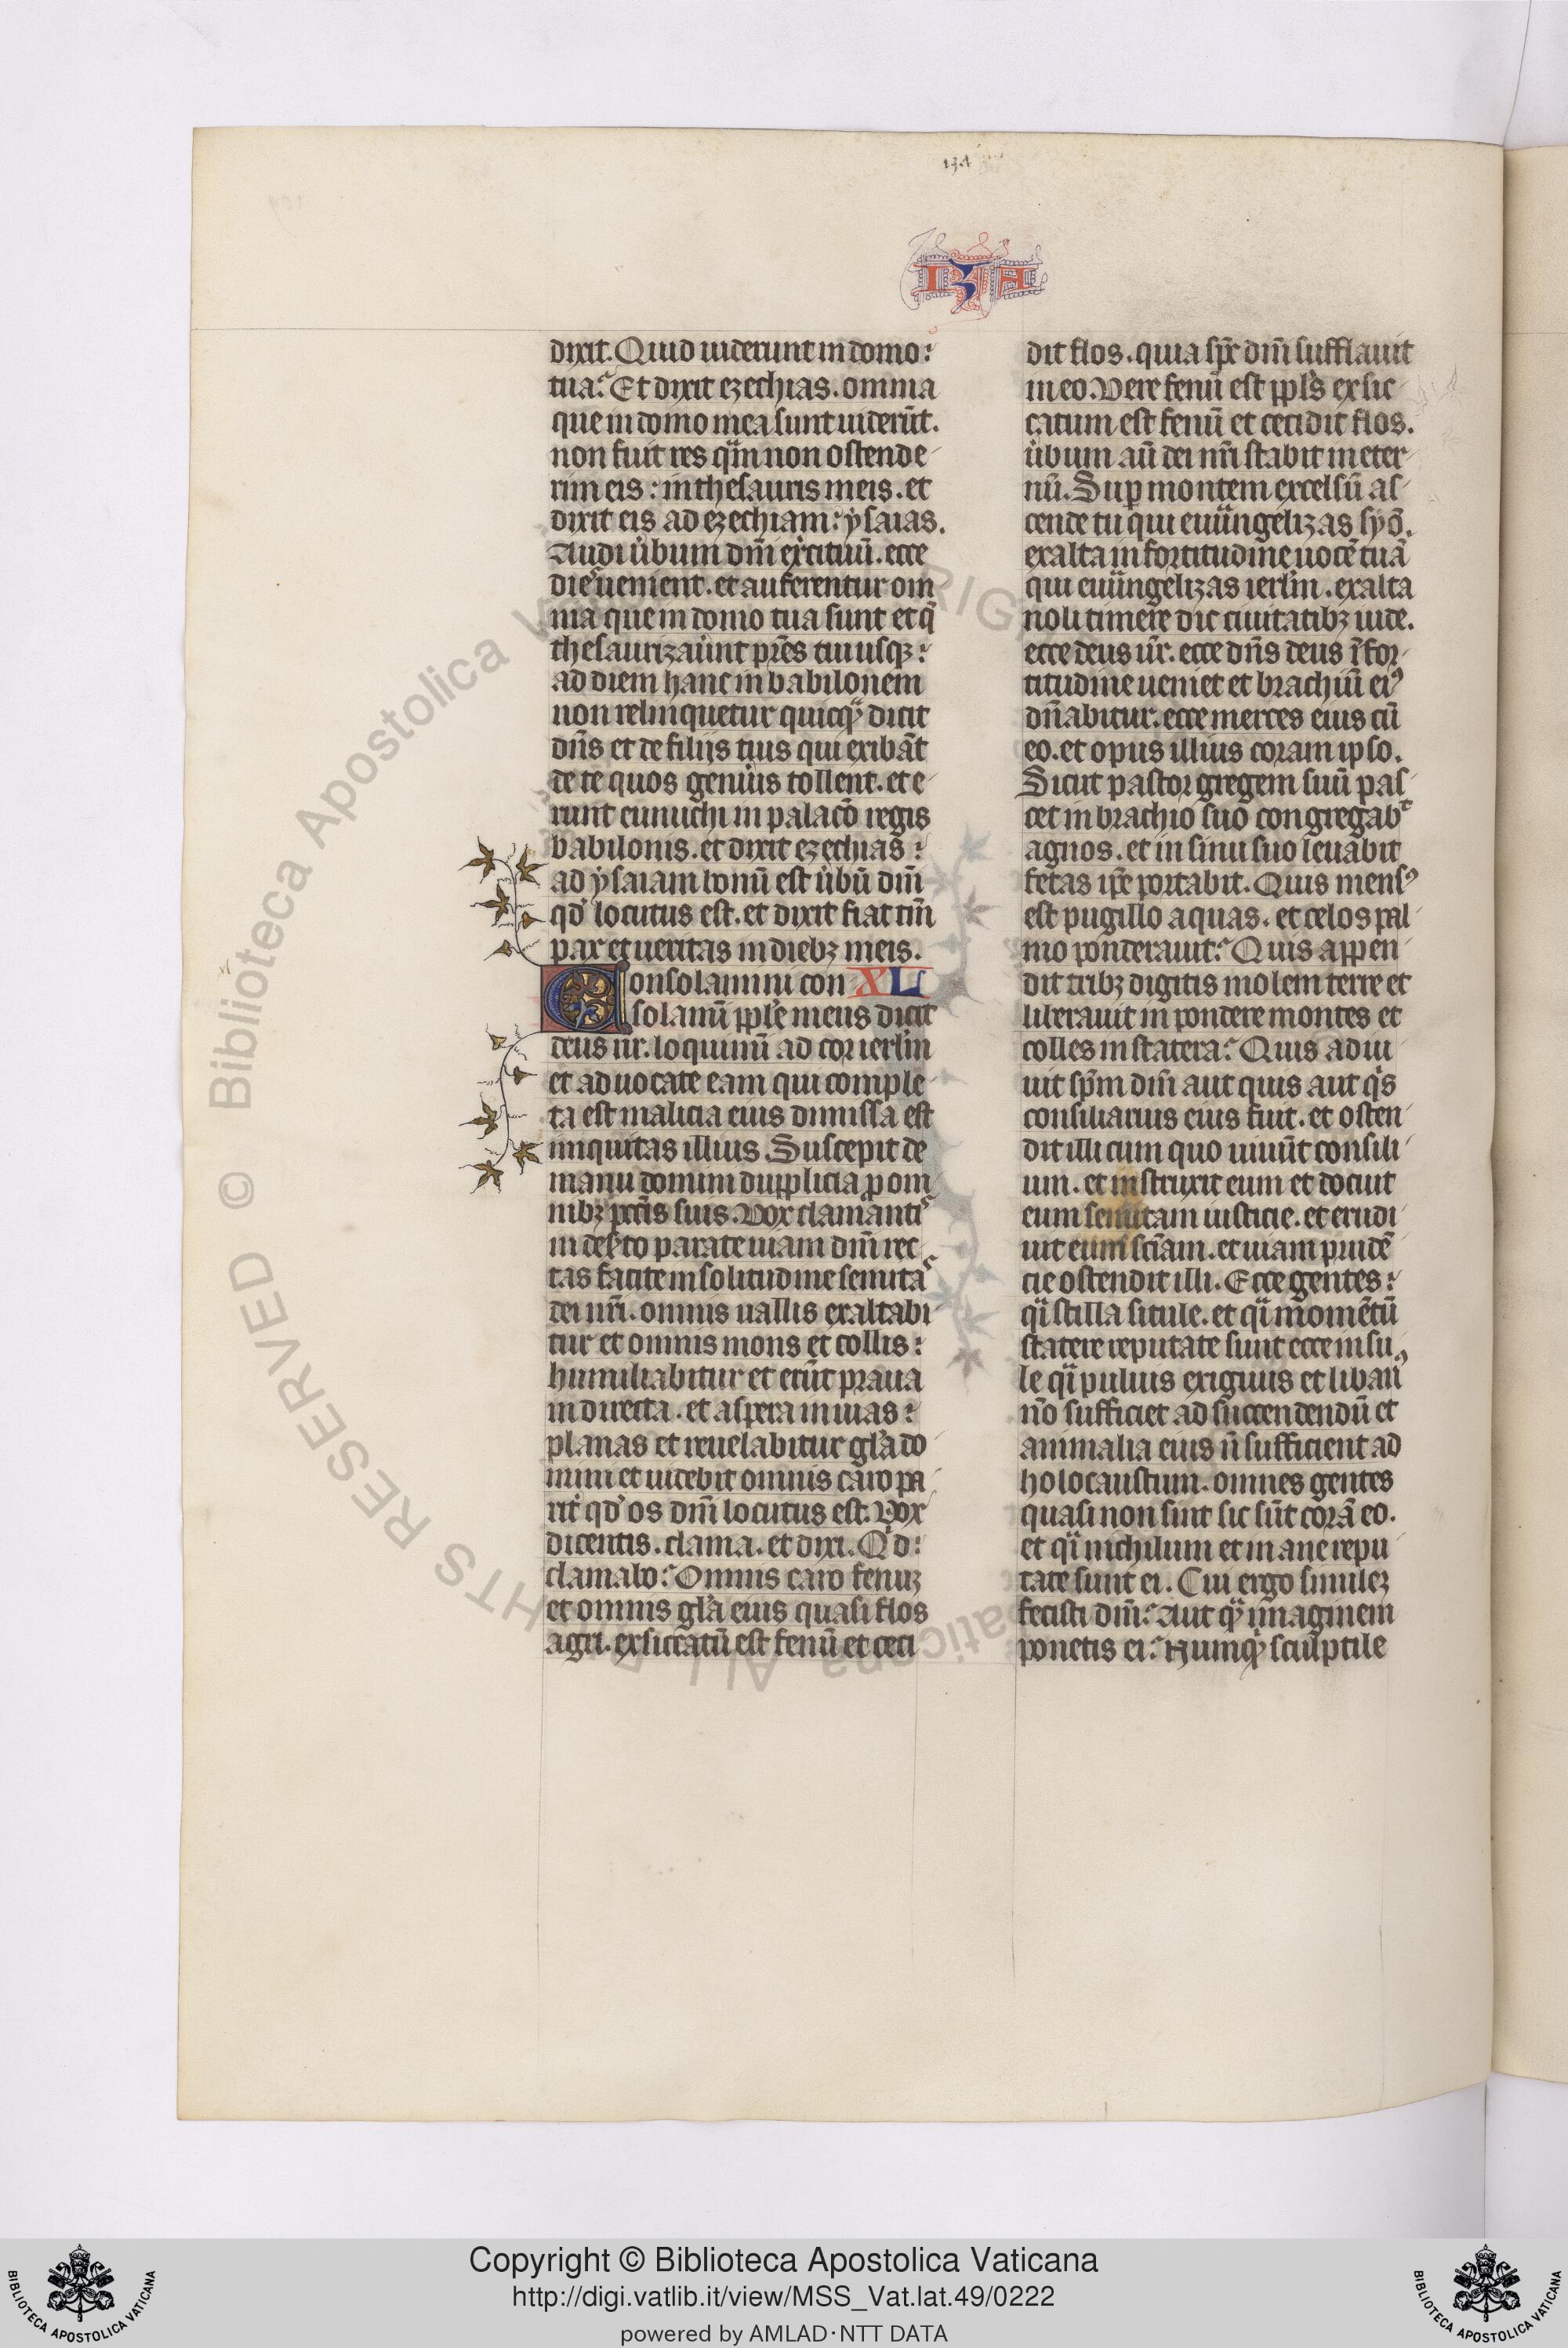 134
IZA
dixit. Quid uiderunt in domo:
tua? Et dixit ezechias. omnia
que in domo mea sunt uiderūt.
non fuit res quā non ostende
rim eis: in thesauris meis. et
dixit eis ad ezechiam: ysaias.
Audi ūbum dn̄i exercituū. ecce
dies uenient. et auferentur om
nia que in domo tua sunt et q̄
thesaurizaūnt pr̄es tui usqꝫ:
ad diem hanc in babilonem
non relinquetur quicqᵃ dicit
dn̄s et de filijs tuis qui exibāt
de te quos genūis tollent. et e
runt eunuchi in palacō regis
babilonis. et dixit ezechias:
ad ysaiam bonū est ūbū dn̄i
qd̓ locutus est. et dixit fiat tm̄
pax et ueritas in diebꝫ meis.
Consolamini con XL
solamī pple meus dicit
deus nr̄. loquimī ad cor ierlm̄
et aduocate eam qui comple
ta est malicia eius dimissa est
iniquitas illius. Suscepit de
manu domini dupplicia p om
nibꝫ pctīs suis. Vox clamantis
in deserto parate uiam dn̄i rec
tas facite in solitudine semitas
dei nr̄i. omnis uallis exaltabi
tur et omnis mons et collis:
humiliabitur et erūt praua
in directa. et aspera in uias:
planas et reuelabitur glā do
mini et uidebit omnis caro pa
rit̓ qd̓ os dn̄i locutus est. Vox
dicentis. clama. et dixi. Qͥd:
clamabo? Omnis caro fenuꝫ
et omnis glā eius quasi flos
agri. exsiccatū est fenū et ceci
dit flos. quia spc̄ dn̄i sufflauit
in eo. Vere fenū est ppls̄ exsic
catum est fenū et cecidit flos.
ūbum aū dei nr̄i stabit in eter
nū. Sup montem excelsū as
cende tu qui euāngelizas syō.
exalta in fortitudine uocē tuā
qui euāngelizas ierlm̄. exalta
noli timere dic ciuitatibꝫ iude.
ecce deus ur̄. ecce dn̄s deus ī for
titudine ueniet et brachiū eiꝰ
dn̄abitur. ecce merces eius cū
eo. et opus illius coram ipso.
Sicut pastor gregem suū pas
cet in brachio suo congregabᵗ
agnos. et in sinu suo leuabit
fetas ipē portabit. Quis mensꝰ
est pugillo aquas. et celos pal
mo ponderauit? Quis appen
dit tribꝫ digitis molem terre et
liberauit in pondere montes et
colles in statera? Quis adiu
uit spm̄ dn̄i aut quis aut qͥs
consiliarius eius fuit. et osten
dit illi cum quo iniuīt consili
um. et instruxit eum et docuit
eum semitam iusticie. et erudi
uit eum sciam̄. et uiam prudē
cie ostendit illi. Ecce gentes:
qͣi stilla situle. et qͣi momētū
statere reputate sunt ecce insu
le qͣi puluis exiguus et libanꝰ
nō sufficiet ad succendendū et
animalia eius n̄ sufficient ad
holocaustum. omnes gentes
quasi non sint sic sūt corā eo.
et qͣi nichilum et inane repu
tate sunt ei. Cui ergo simileꝫ
fecisti dm̄? Aut qᵃ imaginem
ponetis ei? Numqͥd sculptile
© Biblioteca Apostolica Vaticana ALL RIGHTS RESERVED
Copyright © Biblioteca Apostolica Vaticana
http://digi.vatlib.it/view/MSS_Vat.lat.49/0222
powered by AMLAD·NTT DATA
BIBLIOTECA APOSTOLICA VATICANA
BIBLIOTECA APOSTOLICA VATICANA